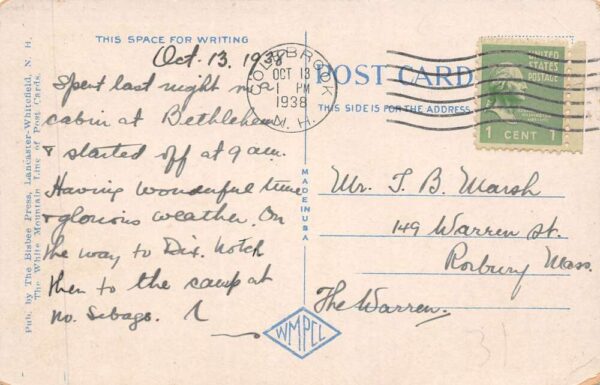 THIS SPACE FOR WRITING
Oct. 13, 1938
Spent last night in
cabin at Bethlehem
& started off at 9 a.m.
Having wonderful time
& glorious weather. On
the way to Dix. Notch
then to the camp at
No. Sebago.
Pub. by The Bisbee Press, Lancaster-Whitefield, N. H.
The White Mountain Line of Post Cards.
COLEBROOK
OCT 13
1 PM
1938
N. H.
POST CARD
THIS SIDE IS FOR THE ADDRESS
UNITED
STATES
POSTAGE
1 CENT 1
MADE IN USA
Mr. T. B. Marsh
149 Warren St.
Roxbury Mass.
The Warren.
WMPCL
31